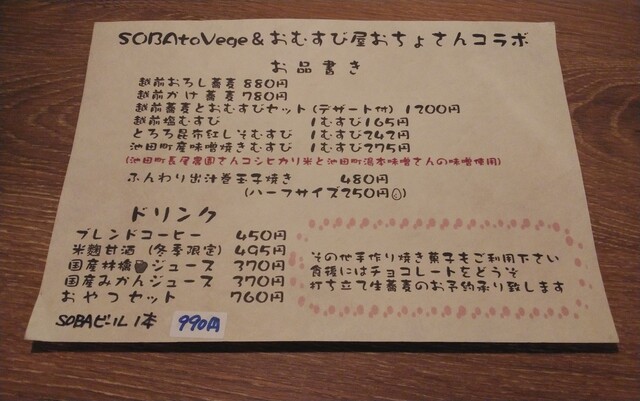 SOBAtoVege&おむすび屋おちょさんコラボ
お品書き
越前おろし蕎麦 880円
越前かけ蕎麦 780円
越前蕎麦とおむすびセット(デザート付) 1200円
越前塩むすび 1むすび165円
とろろ昆布紅しそむすび 1むすび242円
池田町産味噌焼きむすび 1むすび275円
(池田町長尾農園さんコシヒカリ米と池田町湯本味噌さんの味噌使用)
ふんわり出汁巻玉子焼き 480円
(ハーフサイズ250円)
ドリンク
ブレンドコーヒー 450円
米麹甘酒 (冬季限定) 495円
国産林檎ジュース 370円
国産みかんジュース 370円
おやつセット 760円
SOBAビール1本 990円
その他手作り焼き菓子もご利用下さい
食後にはチョコレートをどうぞ
打ち立て生蕎麦のお予約承り致します